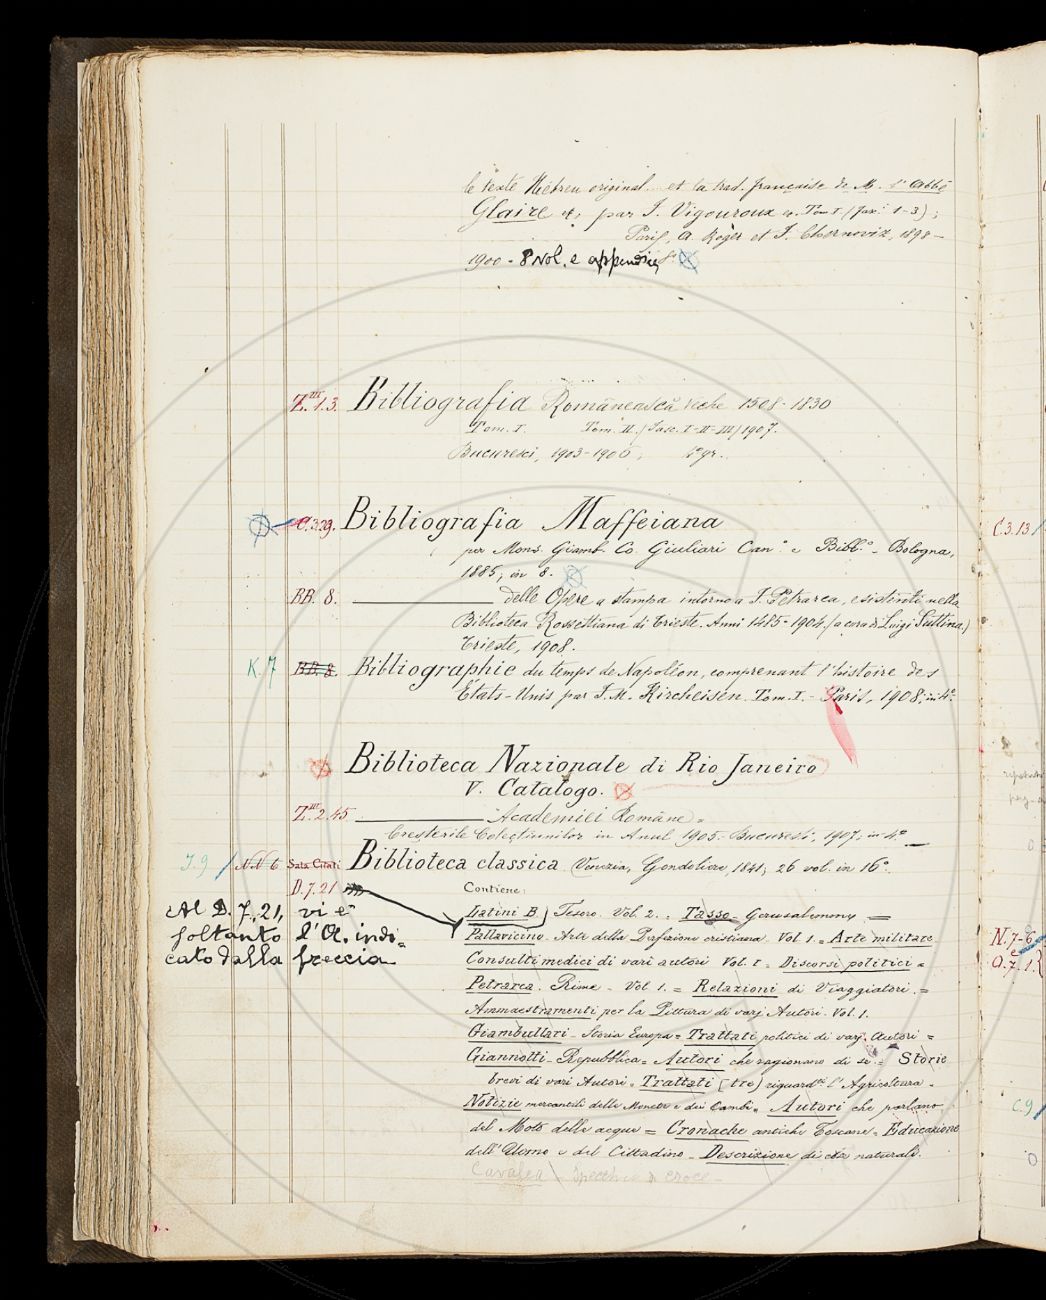 le texte Hébreu original et la trad. française de M. l'abbé
Glaire &, par F. Vigouroux &. Tom I (fasc. 1-3);
Paris, A. Roger et F. Chernoviz, 1898-
1900 - 8 vol. e appendici 8°.
Z.III.1.3. Bibliografia Românească veche 1508-1830
Tom. I. Tom. II. (Fasc. I-II-III) 1907.
Bucuresci, 1903-1906; 4° gr.
C.3.29. Bibliografia Maffeiana C.3.13
per Mons. Giamb. Co. Giuliari Can.° e Bibl.° - Bologna,
1885, in 8.
BB. 8. delle Opere a stampa intorno a F. Petrarca, esistenti nella
Biblioteca Rossettiana di Trieste. Anni 1485-1904. (a cura di Luigi Suttina.)
Trieste, 1908.
K.7 BB. 8. Bibliographie du temps de Napoléon, comprenant l'histoire des
États-Unis par F. M. Kircheisen. Tom. I. - Paris, 1908; in 4°.
Biblioteca Nazionale di Rio Janeiro
V. Catalogo.
Z.III.2.45. Academiei Române =
Cresterile Colectiunilor in Anul 1905 - Bucuresti, 1907; in 4°
J.9 N.N 6 Sala Citati Biblioteca classica. Venezia, Gondoliere 1841; 26 vol. in 16°.
D.7.21 Contiene:
Al D.7.,21, vi è Latini B) Tesoro. Vol. 2. : Tasso - Gerusalemme =
soltanto l'O. indi= Pallavicino - Arte della Perfezione cristiana Vol. 1. = Arte militare N.7-6
cato dalla freccia Consulti medici di vari autori Vol. 1 = Discorsi politici = O.7.1.
Petrarca. Rime - Vol 1. = Relazioni di Viaggiatori. =
Ammaestramenti per la Pittura di varj Autori. Vol. 1.
Giambullari - Storia Europa = Trattati politici di varj Autori =
Giannotti - Repubblica = Autori che ragionano di se = Storie
brevi di vari Autori = Trattati (tre) riguard.ti l'Agricoltura -
Notizie mercantili delle Monete e dei Cambi = Autori che parlano C.9
del Moto delle acque = Cronache antiche Toscane = Educazione
dell'Uomo e del Cittadino - Descrizione di cose naturali.
Cavalca Specchio di croce -